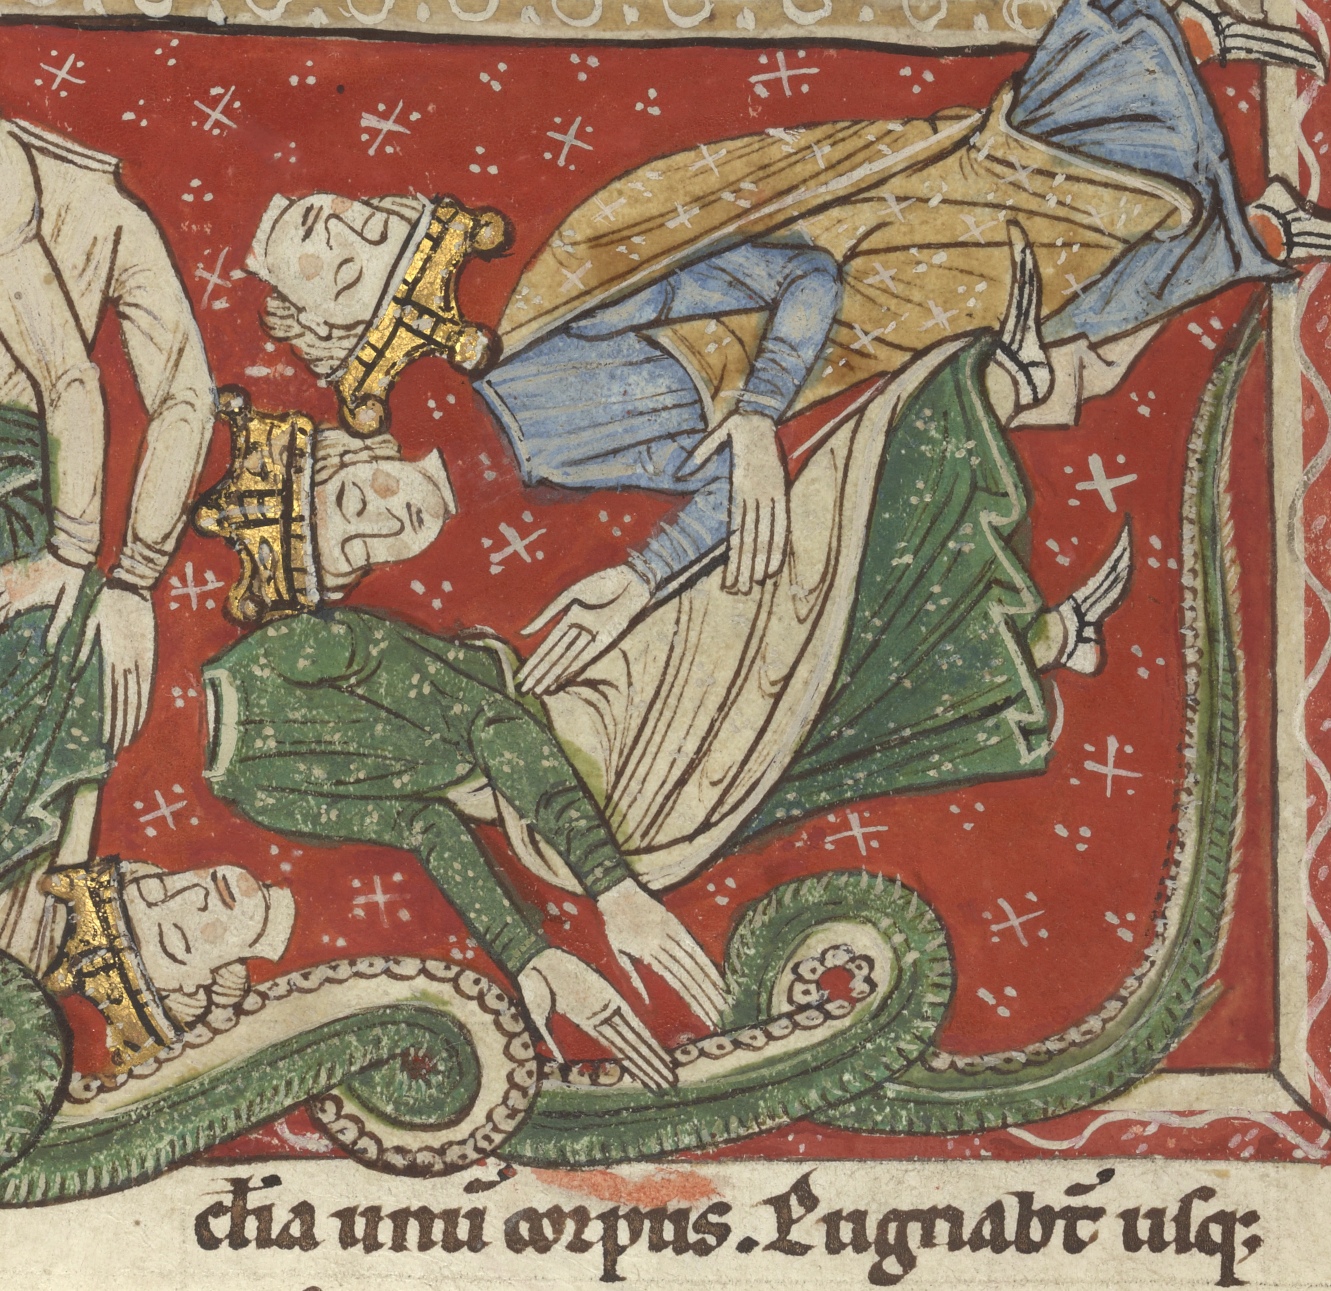 cħia unū corpus. Pugnabt̄ usq;